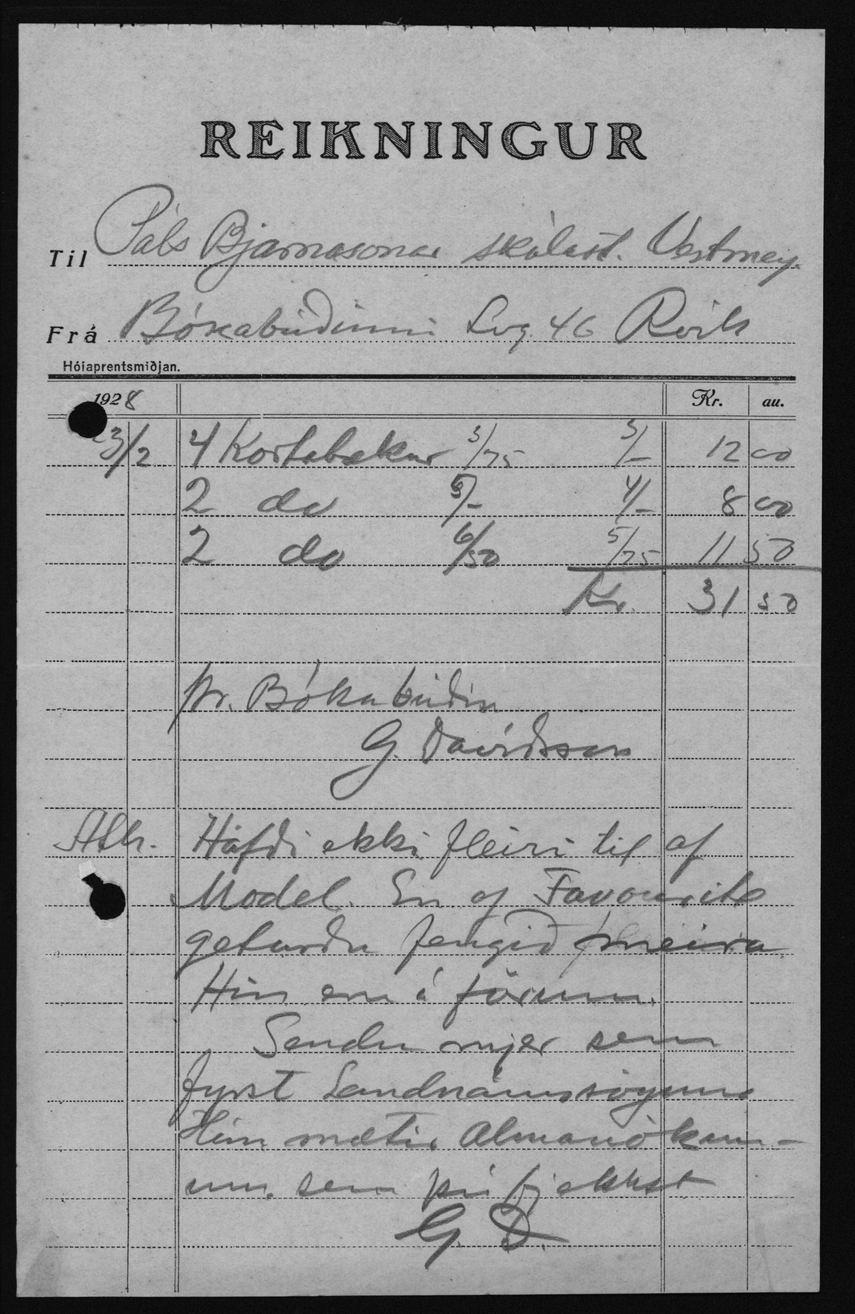 REIKNINGUR
Til Páls Bjarnasonar skólast. Vestmey.
Frá Bókabúðinni Lvg 46 Rvík
Hólaprentsmiðjan.
1928 Kr. au.
23/2 4 Kortabækur 3/75 3/- 12 00
2 do 5/- 4/- 8 00
2 do 6/50 5/75 11 50
Kr. 31 50
pr. Bókabúðin
G. Davíðsson
Ath. Hafði ekki fleiri til af
Model. En af Favourite
geturðu fengið meira
Hin eru á förum.
Sendu mjer sem
fyrst Landnámssöguna
Hún mætir Almanökun-
um, sem þú fjekkst
G. D.